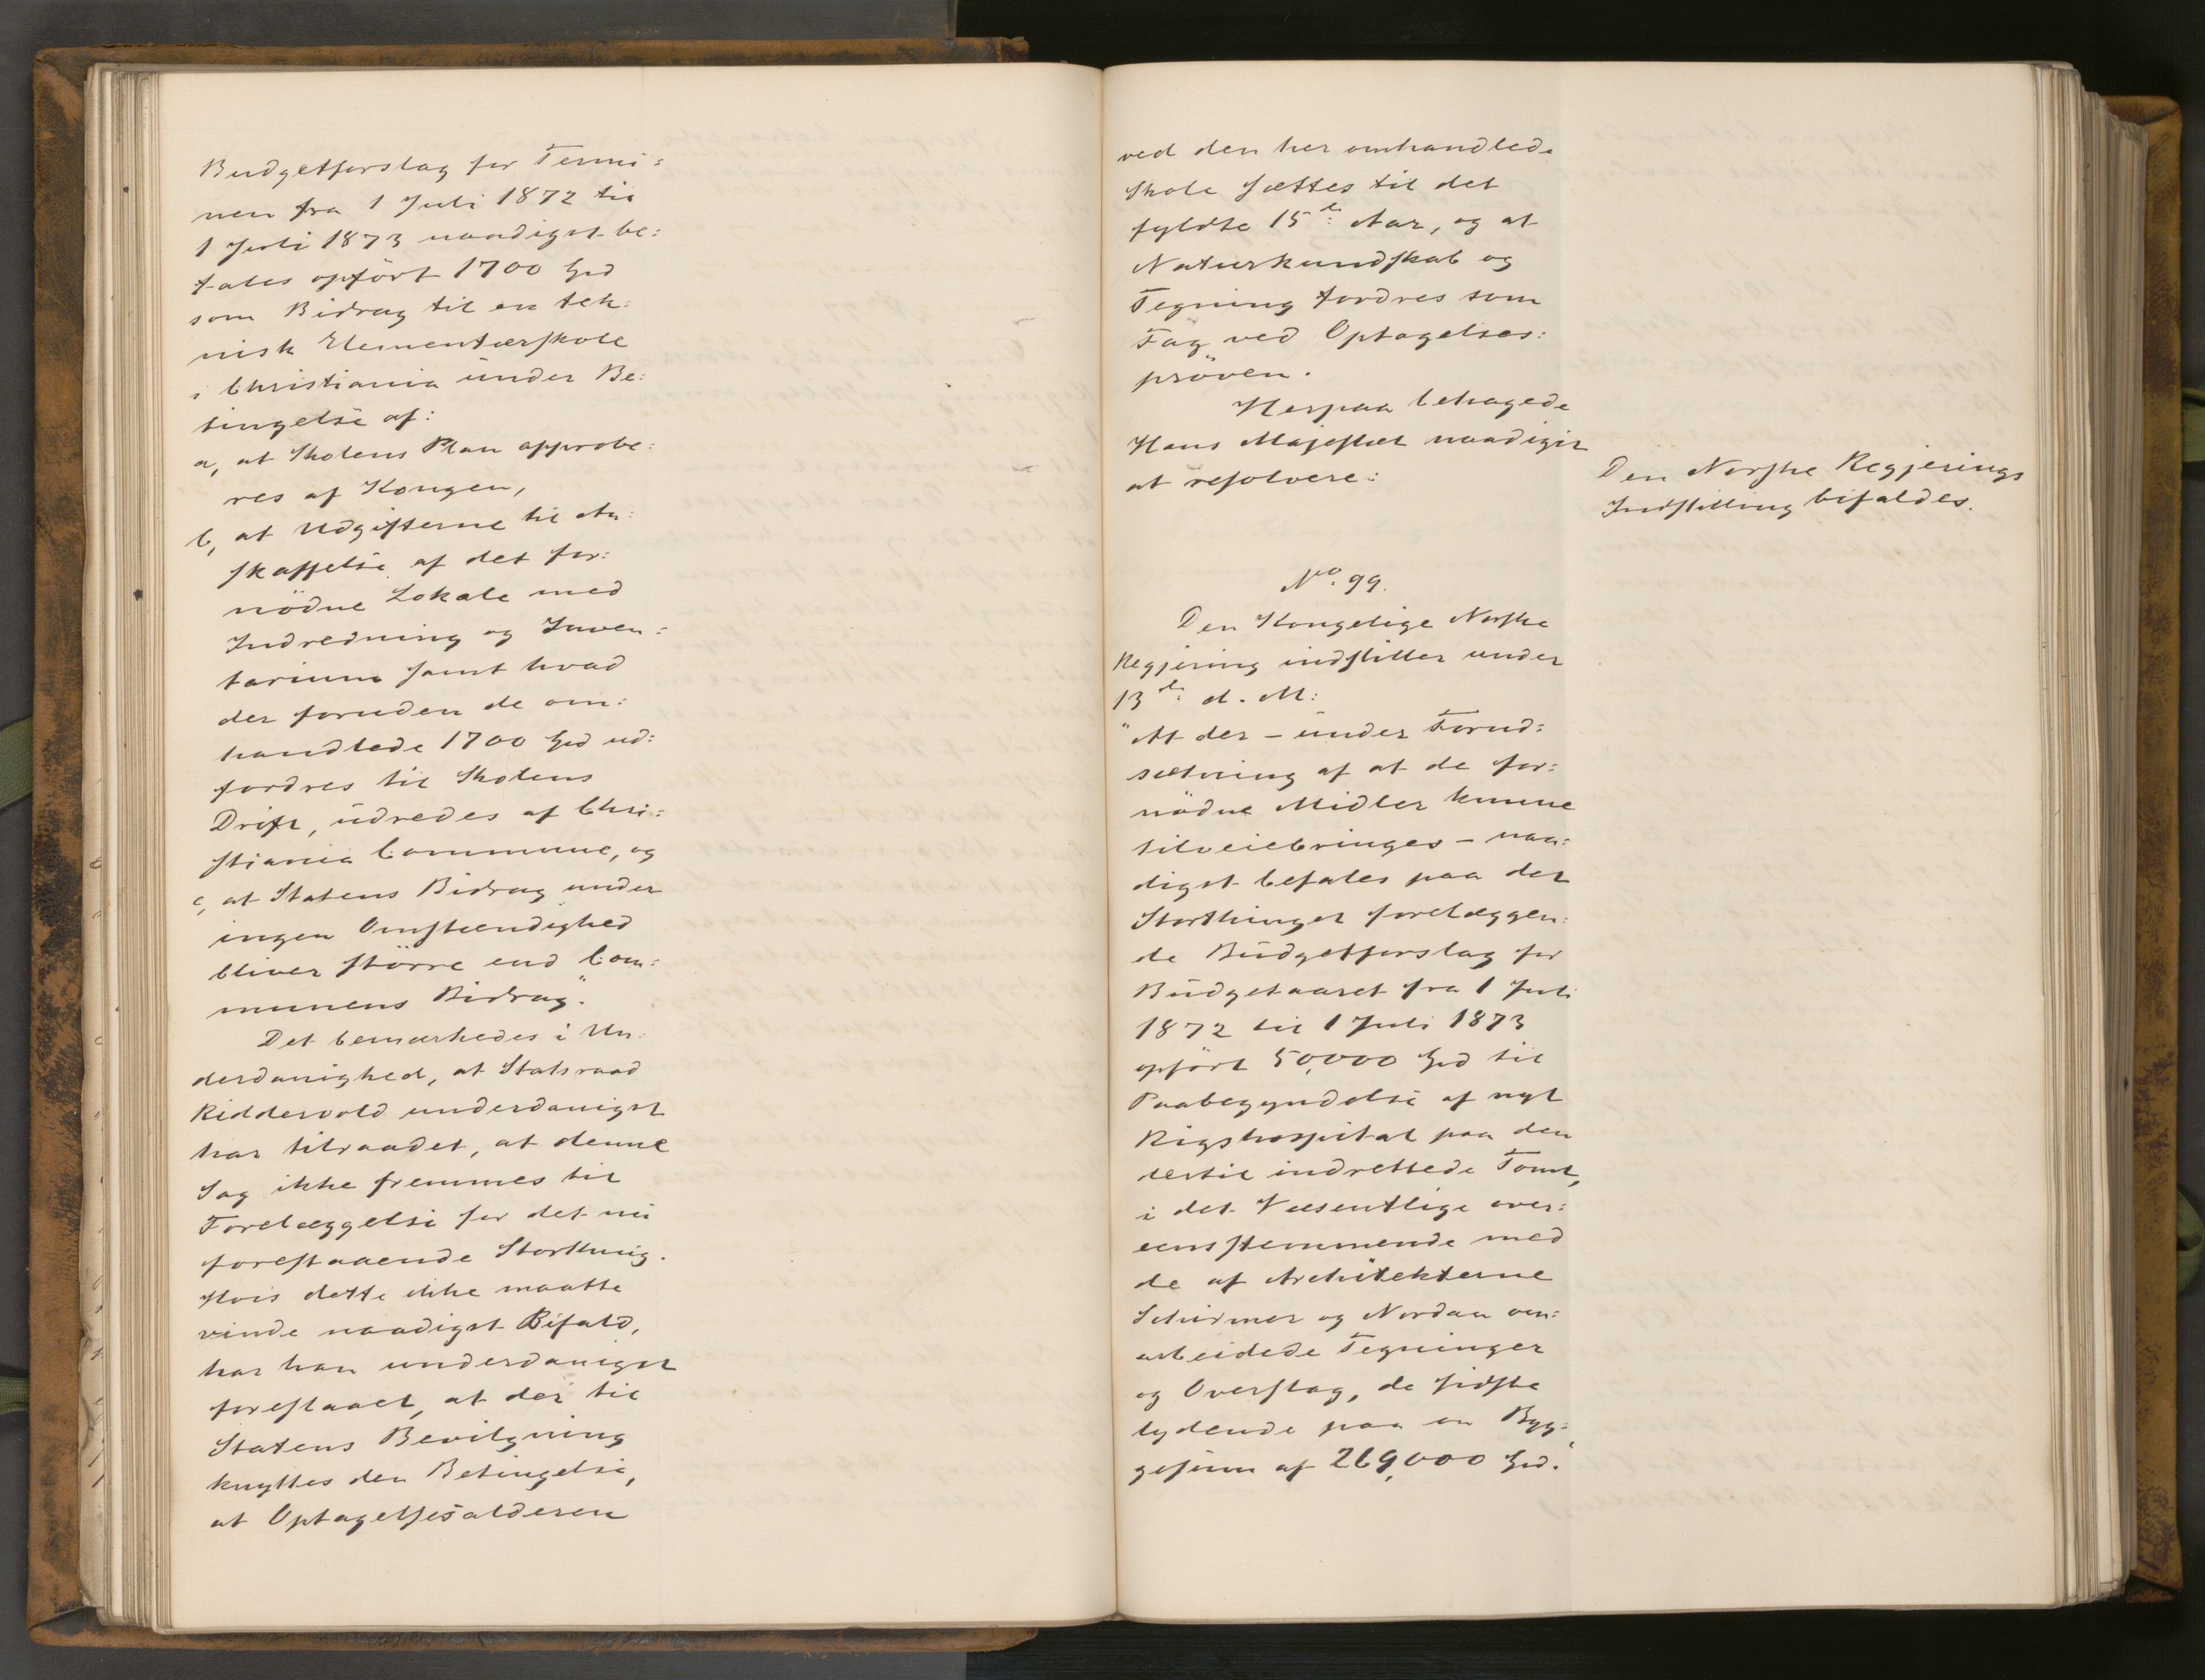 Budgetforslag for Termi:
nen fra 1 Juli 1872 til
1 Juli 1873 naadigst be:
fales opført 1700 Spd
som Bidrag til en tek:
nisk Elementærskole
i Christiania under Be:
tingelse af:
a, at Skolens Plan approbe:
res af Kongen,
b, at Udgifterne til An:
skaffelse af det for:
nödne Lokale med
Indredning og Inven:
tarium samt hvad
der foruden de om:
handlede 1700 Spd ud:
fordres til Skolens
Drift, udredes af Chri:
stiania Commune, og
c, at Statens Bidrag under
ingen Omstændighed
bliver större end Com:
munens Bidrag".
Det bemærkedes i Un:
derdanighed, at Statsraad
Riddervold underdanigst
har tilraadet, at denne
Sag ikke fremmes til
Forelæggelse for det nu
forestaaende Storthing.
Hvis dette ikke maatte
vinde naadigst Bifald,
har han underdanigst
foreslaaet, at der til
Statens Bevilgning
knyttes den Betingelse,
at Optagelsesalderen
ved den her omhandlede
Skole sættes til det
fyldte 15de Aar, og at
Naturkundskab og
Tegning fordres som
Fag ved Optagelses:
pröven.
Herpaa behagede
Hans Majestæt naadigst
at resolvere:
Den Norske Regjerings
Indstilling bifaldes.
No. 99.
Den Kongelige Norske
Regjering indstiller under
13de d. M:
"At der – under Forud:
sætning af at de for:
nödne Midler kunne
tilveiebringes – naa:
digst befales paa det
Storthinget forelæggen:
de Budgetforslag for
Budgetaaret fra 1 Juli
1872 til 1 Juli 1873
opført 50,000 Spd til
Paabegyndelse af nyt
Rigshospital paa den
dertil indrettede Tomt,
i det Væsentlige over:
eensstemmende med
de af Architekterne
Schirmer og Nordan om:
arbeidede Tegninger
og Overslag, de sidste
lydende paa en Byg:
gesum af 269,000 Spd."